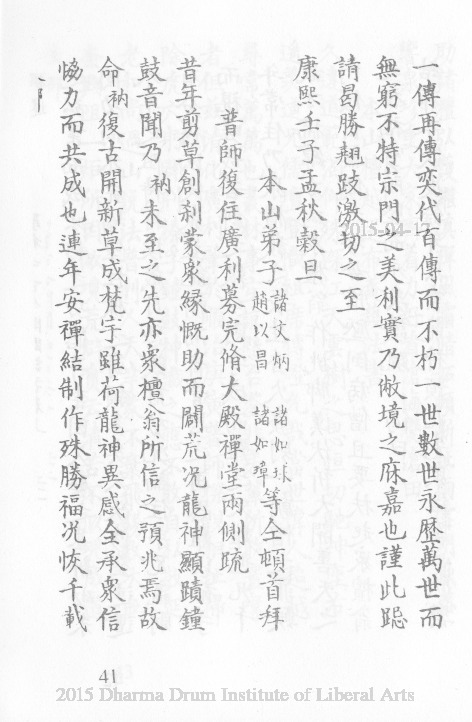 一傳再傳奕代百傳而不朽一世數世永歷萬世而
無窮不特宗門之美利實乃敝境之庥嘉也謹此跽
請曷勝翹跂激切之至
康熙壬子孟秋穀旦
本山弟子諸文炳 趙以昌 諸如球 諸如璋等仝頓首拜
普師復住廣利募完脩大殿禪堂兩側疏
昔年剪草創剎蒙衆緣慨助而闢荒况龍神顯蹟鐘
鼓音聞乃衲未至之先亦衆檀翁所信之預兆焉故
命衲復古開新草成梵宇雖荷龍神異感全承衆信
恊力而共成也連年安禪結制作殊勝福况恢千載
2015-04-17
41
2015 Dharma Drum Institute of Liberal Arts